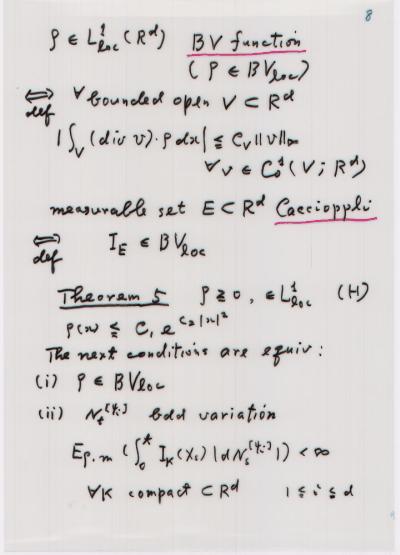 8
ρ ∈ L¹loc(Rᵈ) BV function
(ρ ∈ BVloc)
⇔def ∀bounded open V ⊂ Rᵈ
|∫_V (div v)·ρ dx| ≦ C_V ||v||∞
∀v ∈ C₀¹(V; Rᵈ)
measurable set E ⊂ Rᵈ Caccioppli
⇔def I_E ∈ BVloc
Theorem 5 ρ ≧ 0, ∈ L¹loc (H)
ρ(x) ≦ C₁ e^{C₂|x|²}
The next conditions are equiv:
(i) ρ ∈ BVloc
(ii) N_t^{[φi]} bdd variation
E_{ρ·m} (∫₀ᵗ I_K(X_s) |dN_s^{[φi]}|) < ∞
∀K compact ⊂ Rᵈ 1 ≦ i ≦ d